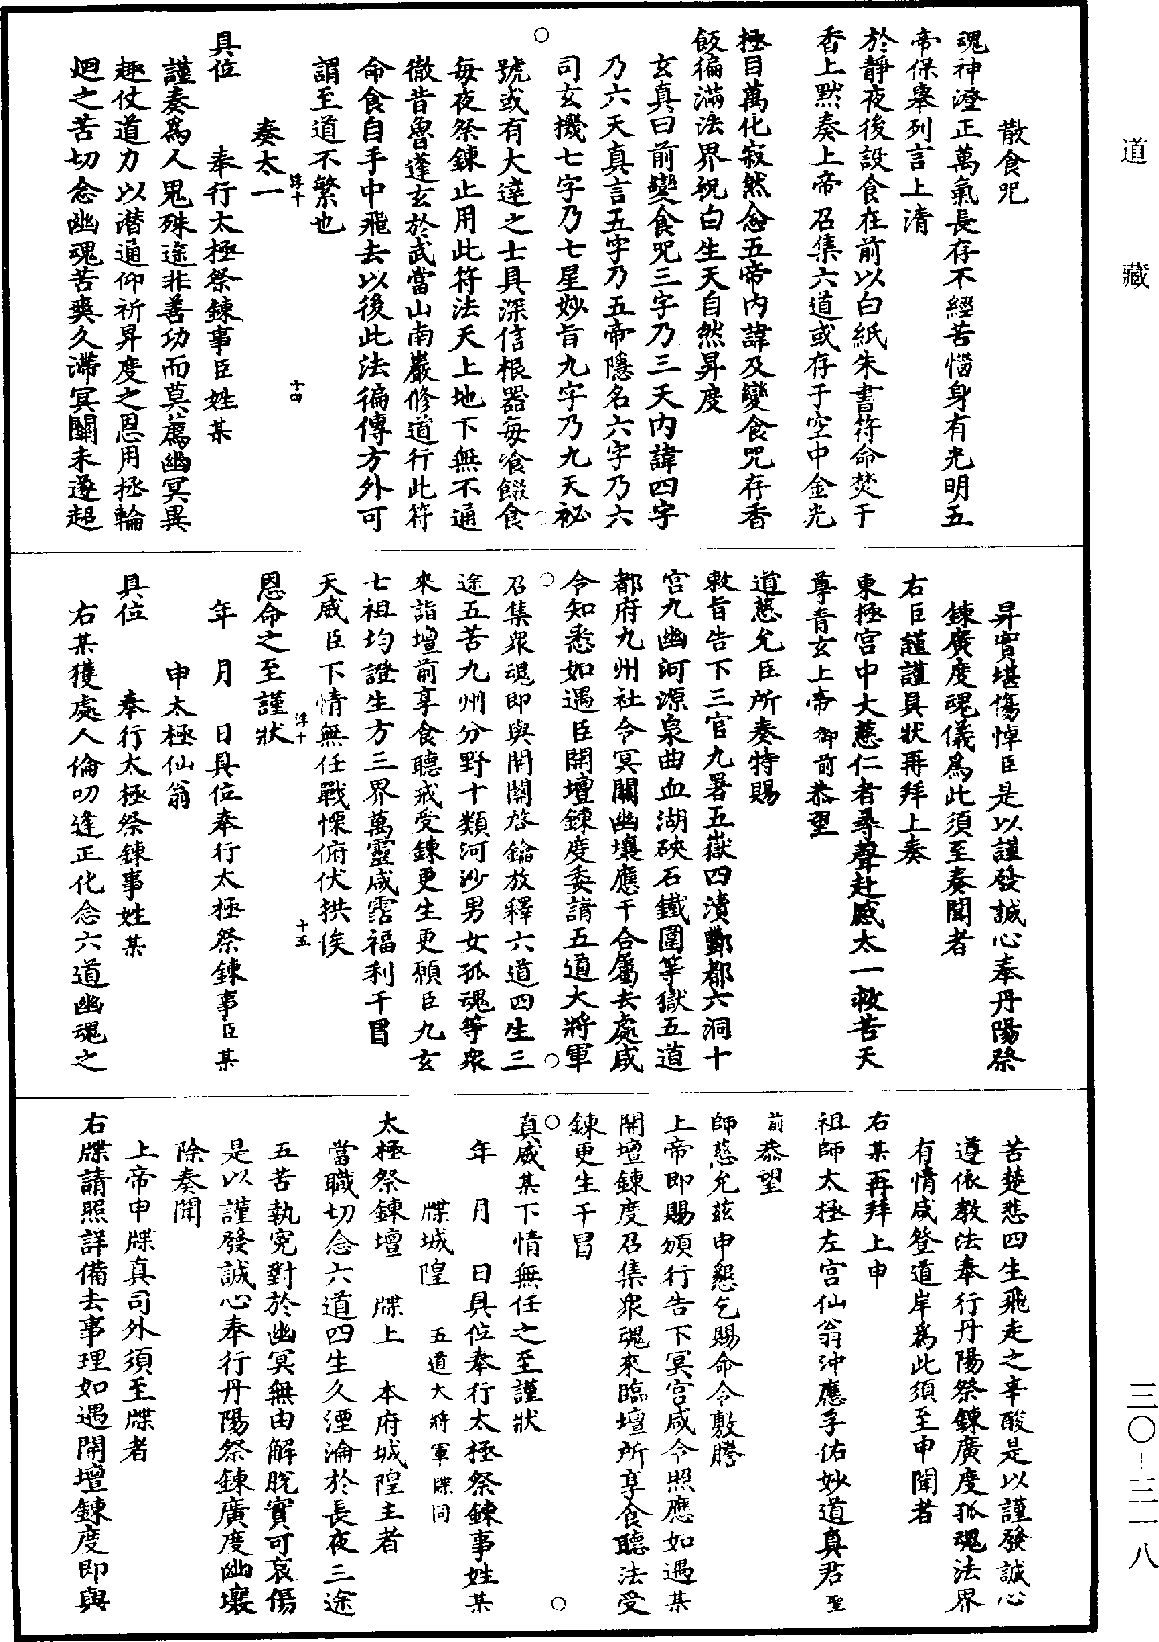 道藏
散食咒
魂神澄正萬氣長存不經苦惱身有光明五
帝保舉列言上清
於靜夜後設食在前以白紙朱書符命焚于
香上默奏上帝召集六道或存于空中金光
拯目萬化寂然念五帝內諱及變食咒存香
飯徧滿法界祝白生天自然昇度
玄真曰前變食咒三字乃三天內諱四字
乃六天真言五字乃五帝隱名六字乃六
司玄機七字乃七星妙旨九字乃九天祕
號或有大達之士具深信根器每飡餟食
每夜祭鍊止用此符法天上地下無不通
徹昔魯蓬玄於武當山南巖修道行此符
命食自手中飛去以後此法徧傳方外可
謂至道不繁也
奏太一
具位 奉行太極祭鍊事臣姓某
謹奏為人鬼殊途非善功而莫薦幽冥異
趣仗道力以潛通仰祈昇度之恩用拯輪
迴之苦切念幽魂苦爽久滯冥關未遂超
昇實堪傷悼臣是以謹發誠心奉丹陽祭
鍊廣度魂儀為此須至奏聞者
右臣謹謹具狀再拜上奏
東極宮中大慈仁者尋聲赴感太一救苦天
尊青玄上帝御前恭望
道慈允臣所奏特賜
敕旨告下三官九署五嶽四瀆酆都六洞十
宮九幽河源泉曲血湖硤石鐵圍等獄五道
都府九州社令冥關幽壤應干合屬去處咸
令知悉如遇臣開壇鍊度委請五道大將軍
召集眾魂即與開關啓鑰放釋六道四生三
途五苦九州分野十類河沙男女孤魂等眾
來詣壇前享食聽戒受鍊更生更願臣九玄
七祖均證生方三界萬靈咸霑福利干冒
天威臣下情無任戰慄俯伏拱俟
恩命之至謹狀
年 月 日具位奉行太極祭鍊事臣某
申太極仙翁
具位 奉行太極祭鍊事姓某
右某獲處人倫叨逢正化念六道幽魂之
苦楚悲四生飛走之辛酸是以謹發誠心
遵依教法奉行丹陽祭鍊廣度孤魂法界
有情咸登道岸為此須至申聞者
右某再拜上申
祖師太極左宮仙翁沖應孚佑妙道真君聖
前恭望
師慈允茲申懇乞賜命令敷騰
上帝即賜頒行告下冥宮咸令照應如遇某
開壇鍊度召集眾魂來臨壇所享食聽法受
鍊更生干冒
真威某下情無任之至謹狀
年 月 日具位奉行太極祭鍊事姓某
牒城隍 五道大將軍牒同
太極祭鍊壇 牒上 本府城隍主者
當職切念六道四生久湮淪於長夜三途
五苦執冤對於幽冥無由解脫實可哀傷
是以謹發誠心奉行丹陽祭鍊廣度幽壤
除奏聞
上帝申牒真司外須至牒者
右牒請照詳備去事理如遇開壇鍊度即與
三〇-三一八